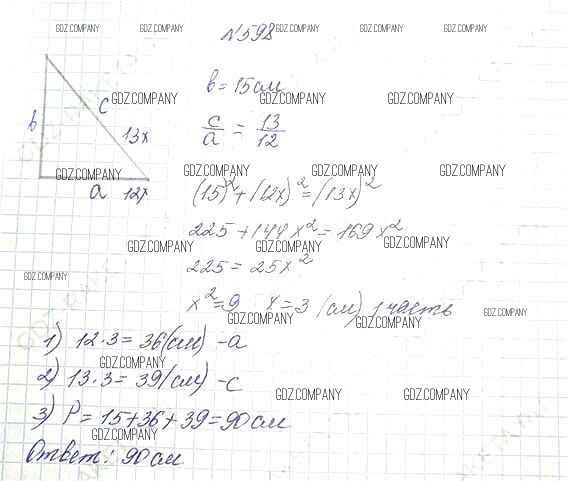 GDZ.COMPANY GDZ.COMPANY GDZ.COMPANY GDZ.COMPANY GDZ.COMPANY
N598
b = 15 см
GDZ.COMPANY GDZ.COMPANY GDZ.COMPANY
c/a = 13/12
b c 13x
GDZ.COMPANY GDZ.COMPANY GDZ.COMPANY GDZ.COMPANY
a 12x
(15)² + (12x)² = (13x)²
225 + 144x² = 169x²
GDZ.COMPANY GDZ.COMPANY GDZ.COMPANY
225 = 25x²
GDZ.COMPANY
x² = 9 x = 3 (см) 1 часть
GDZ.COMPANY GDZ.COMPANY GDZ.COMPANY
1) 12·3 = 36 (см) - a
GDZ.COMPANY
2) 13·3 = 39 (см) - c
GDZ.COMPANY GDZ.COMPANY
3) P = 15 + 36 + 39 = 90 см
GDZ.COMPANY
Ответ: 90 см